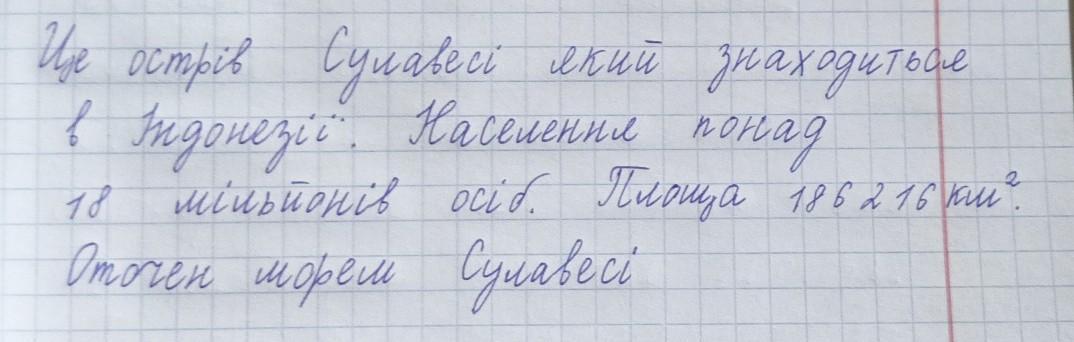 Це острів Сулавесі який знаходиться
в Індонезії. Населення понад
18 мільйонів осіб. Площа 186 216 км².
Оточен морем Сулавесі